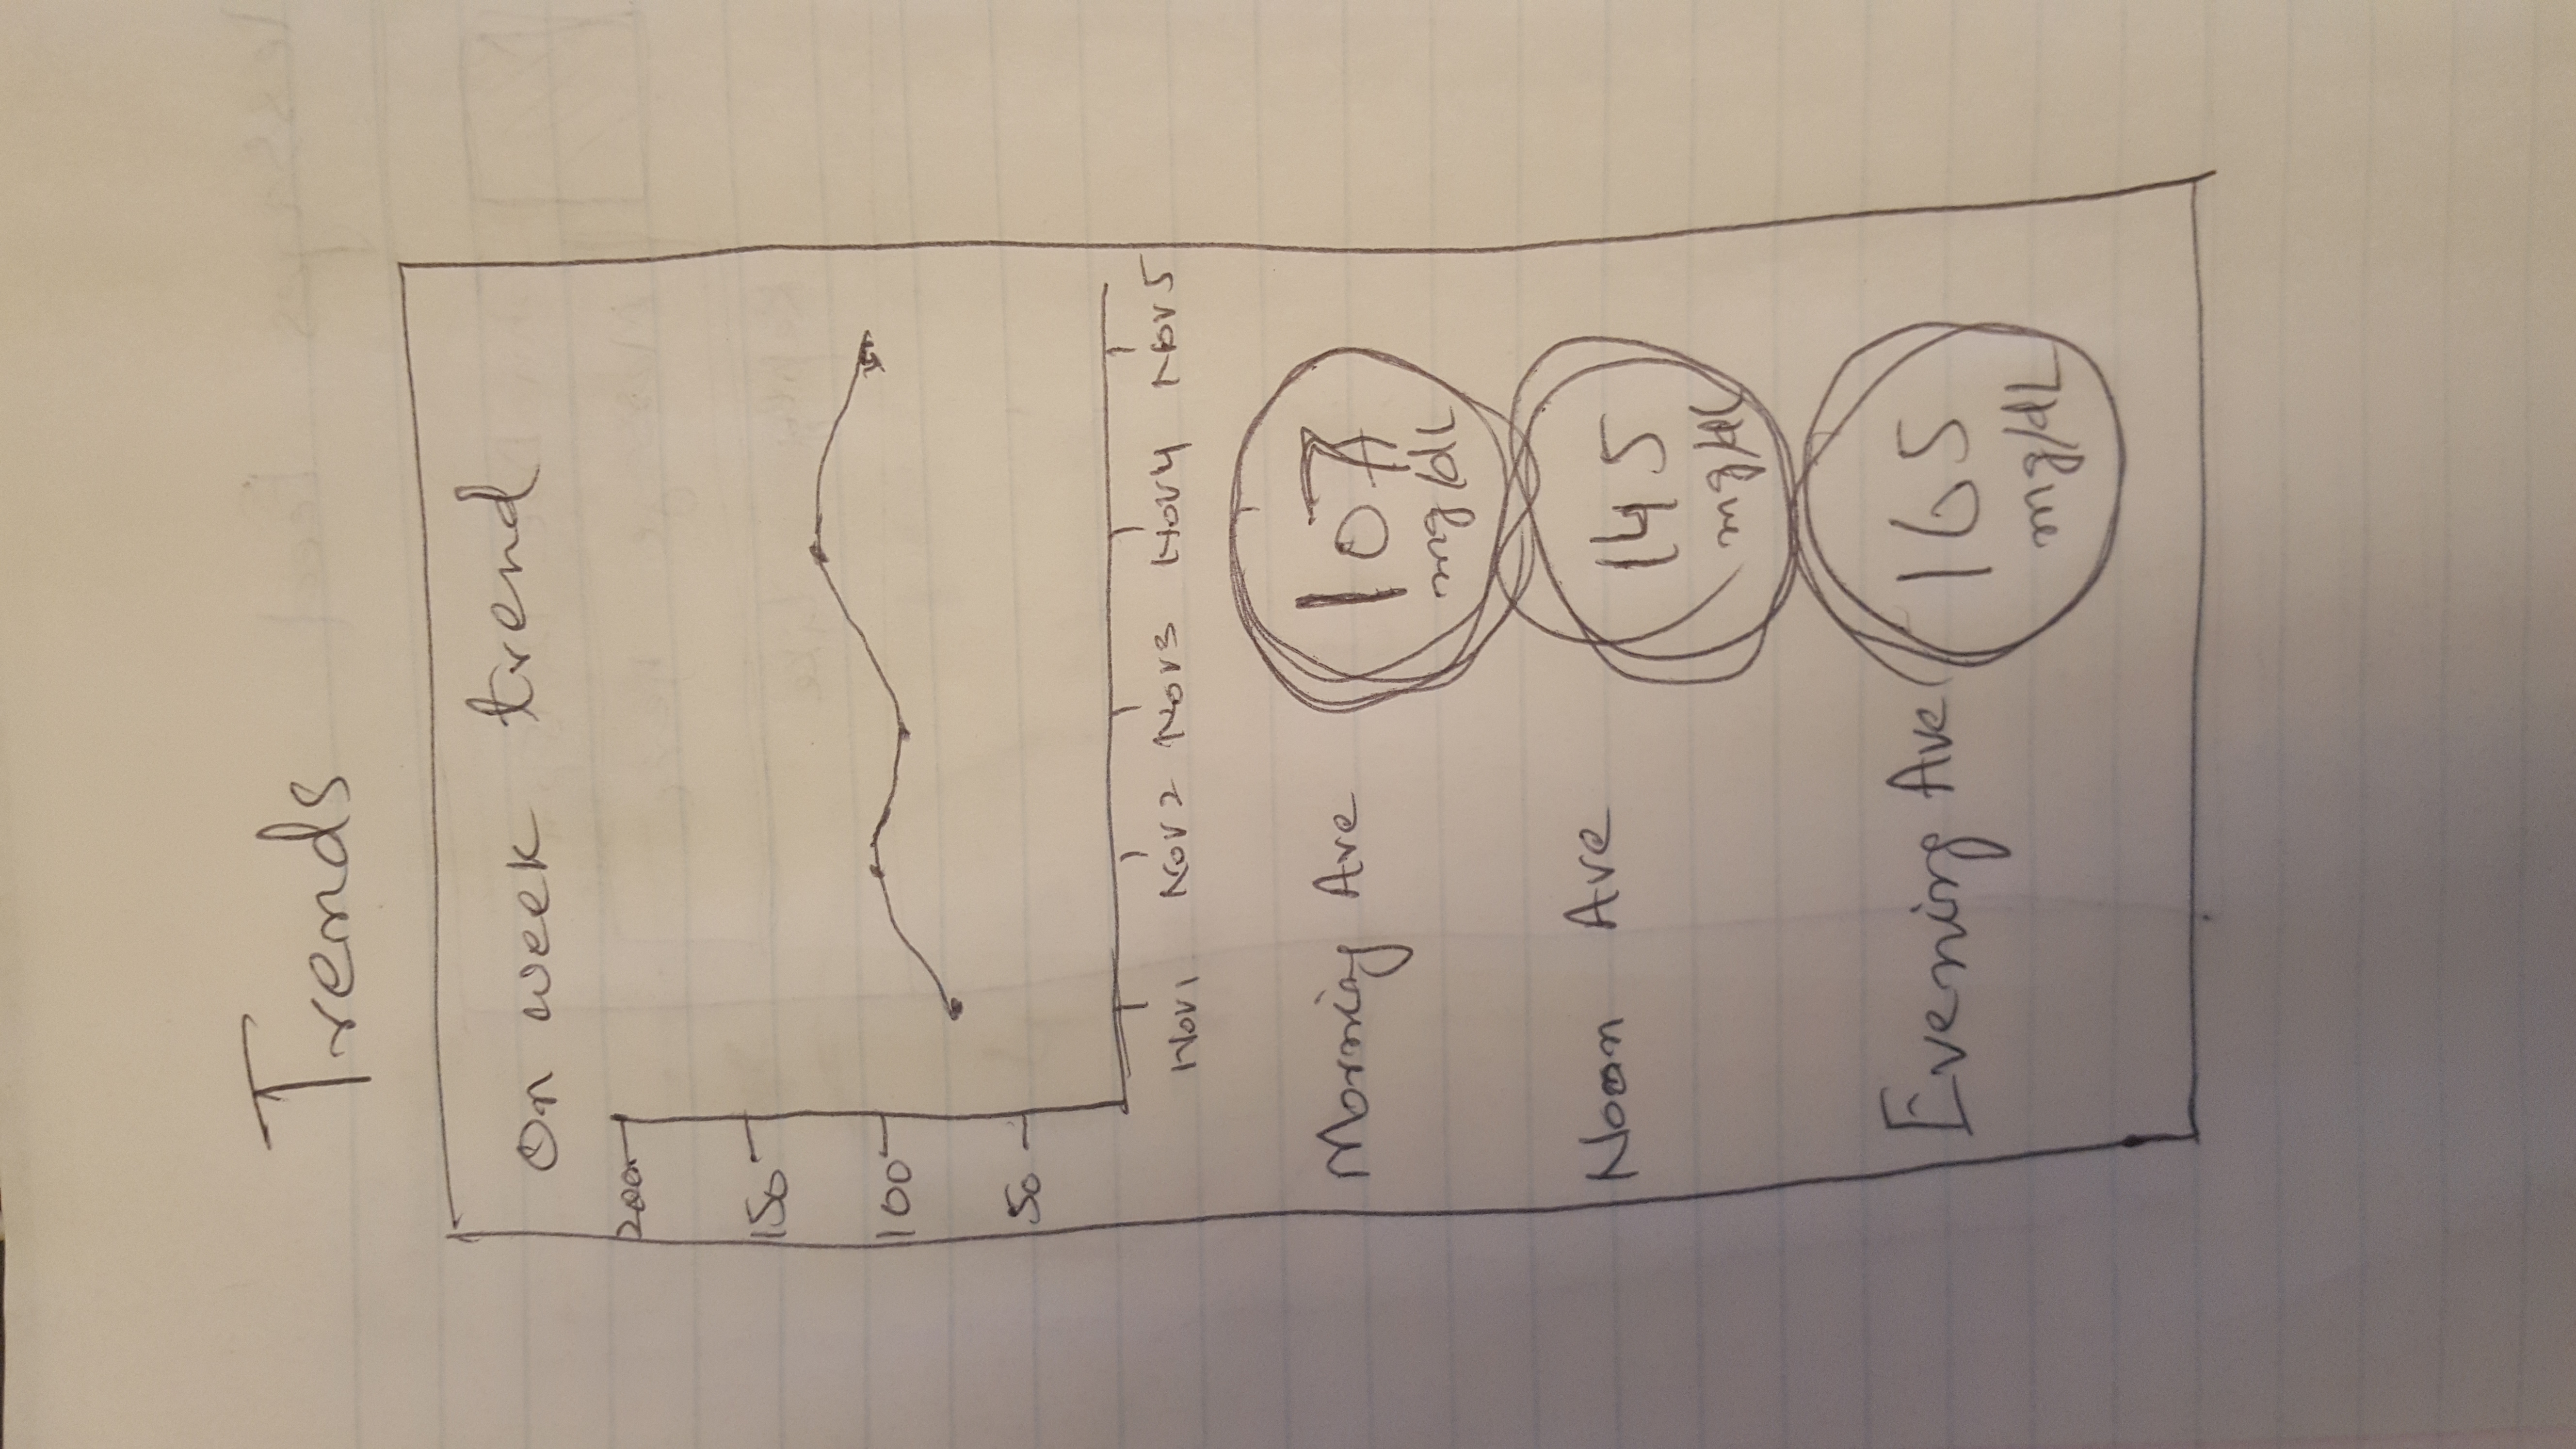 Trends
On week trend
200
150
100
50
Nov1 Nov2 Nov3 Nov4 Nov5
Morning Ave 107
mg/dL
Noon Ave 145
mg/dL
Evening Ave 165
mg/dL